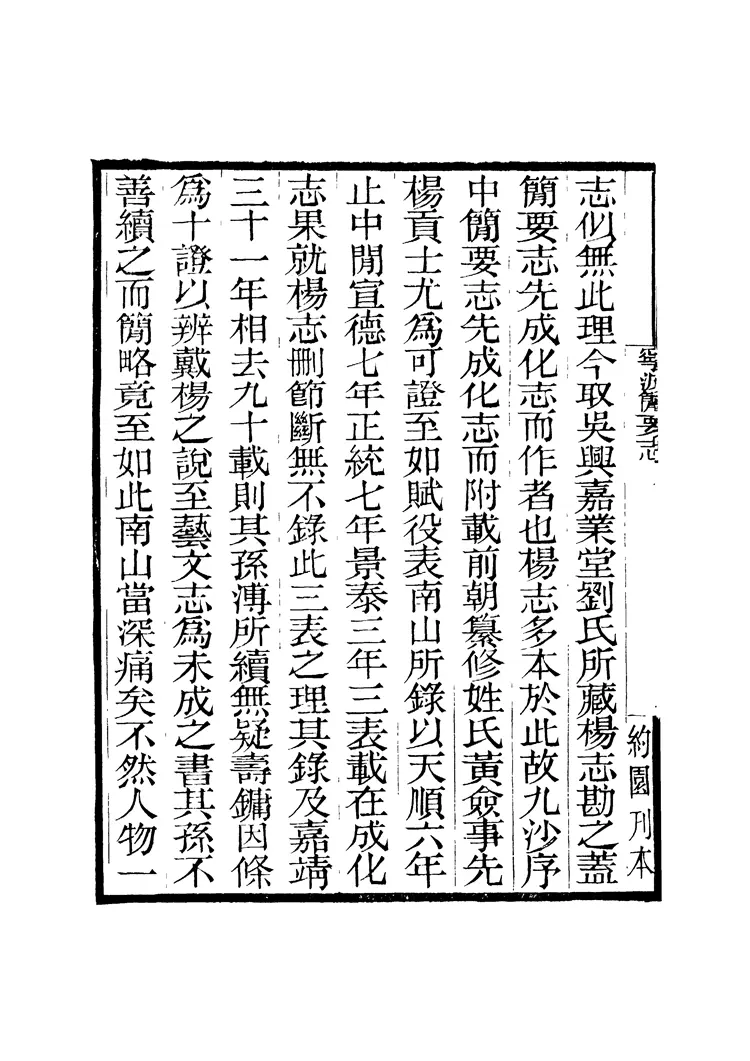 志似無此理今取吳興嘉業堂劉氏所藏楊志勘之蓋
簡要志先成化志而作者也楊志多本於此故九沙序
中簡要志先成化志而附載前朝纂修姓氏黃僉事先
楊貢士尤爲可證至如賦役表南山所錄以天順六年
止中閒宣德七年正統七年景泰三年三表載在成化
志果就楊志刪節斷無不錄此三表之理其錄及嘉靖
三十一年相去九十載則其孫溥所續無疑壽鏞因條
爲十證以辨戴楊之說至藝文志爲未成之書其孫不
善續之而簡略竟至如此南山當深痛矣不然人物一
寧波簡要志
約園刊本